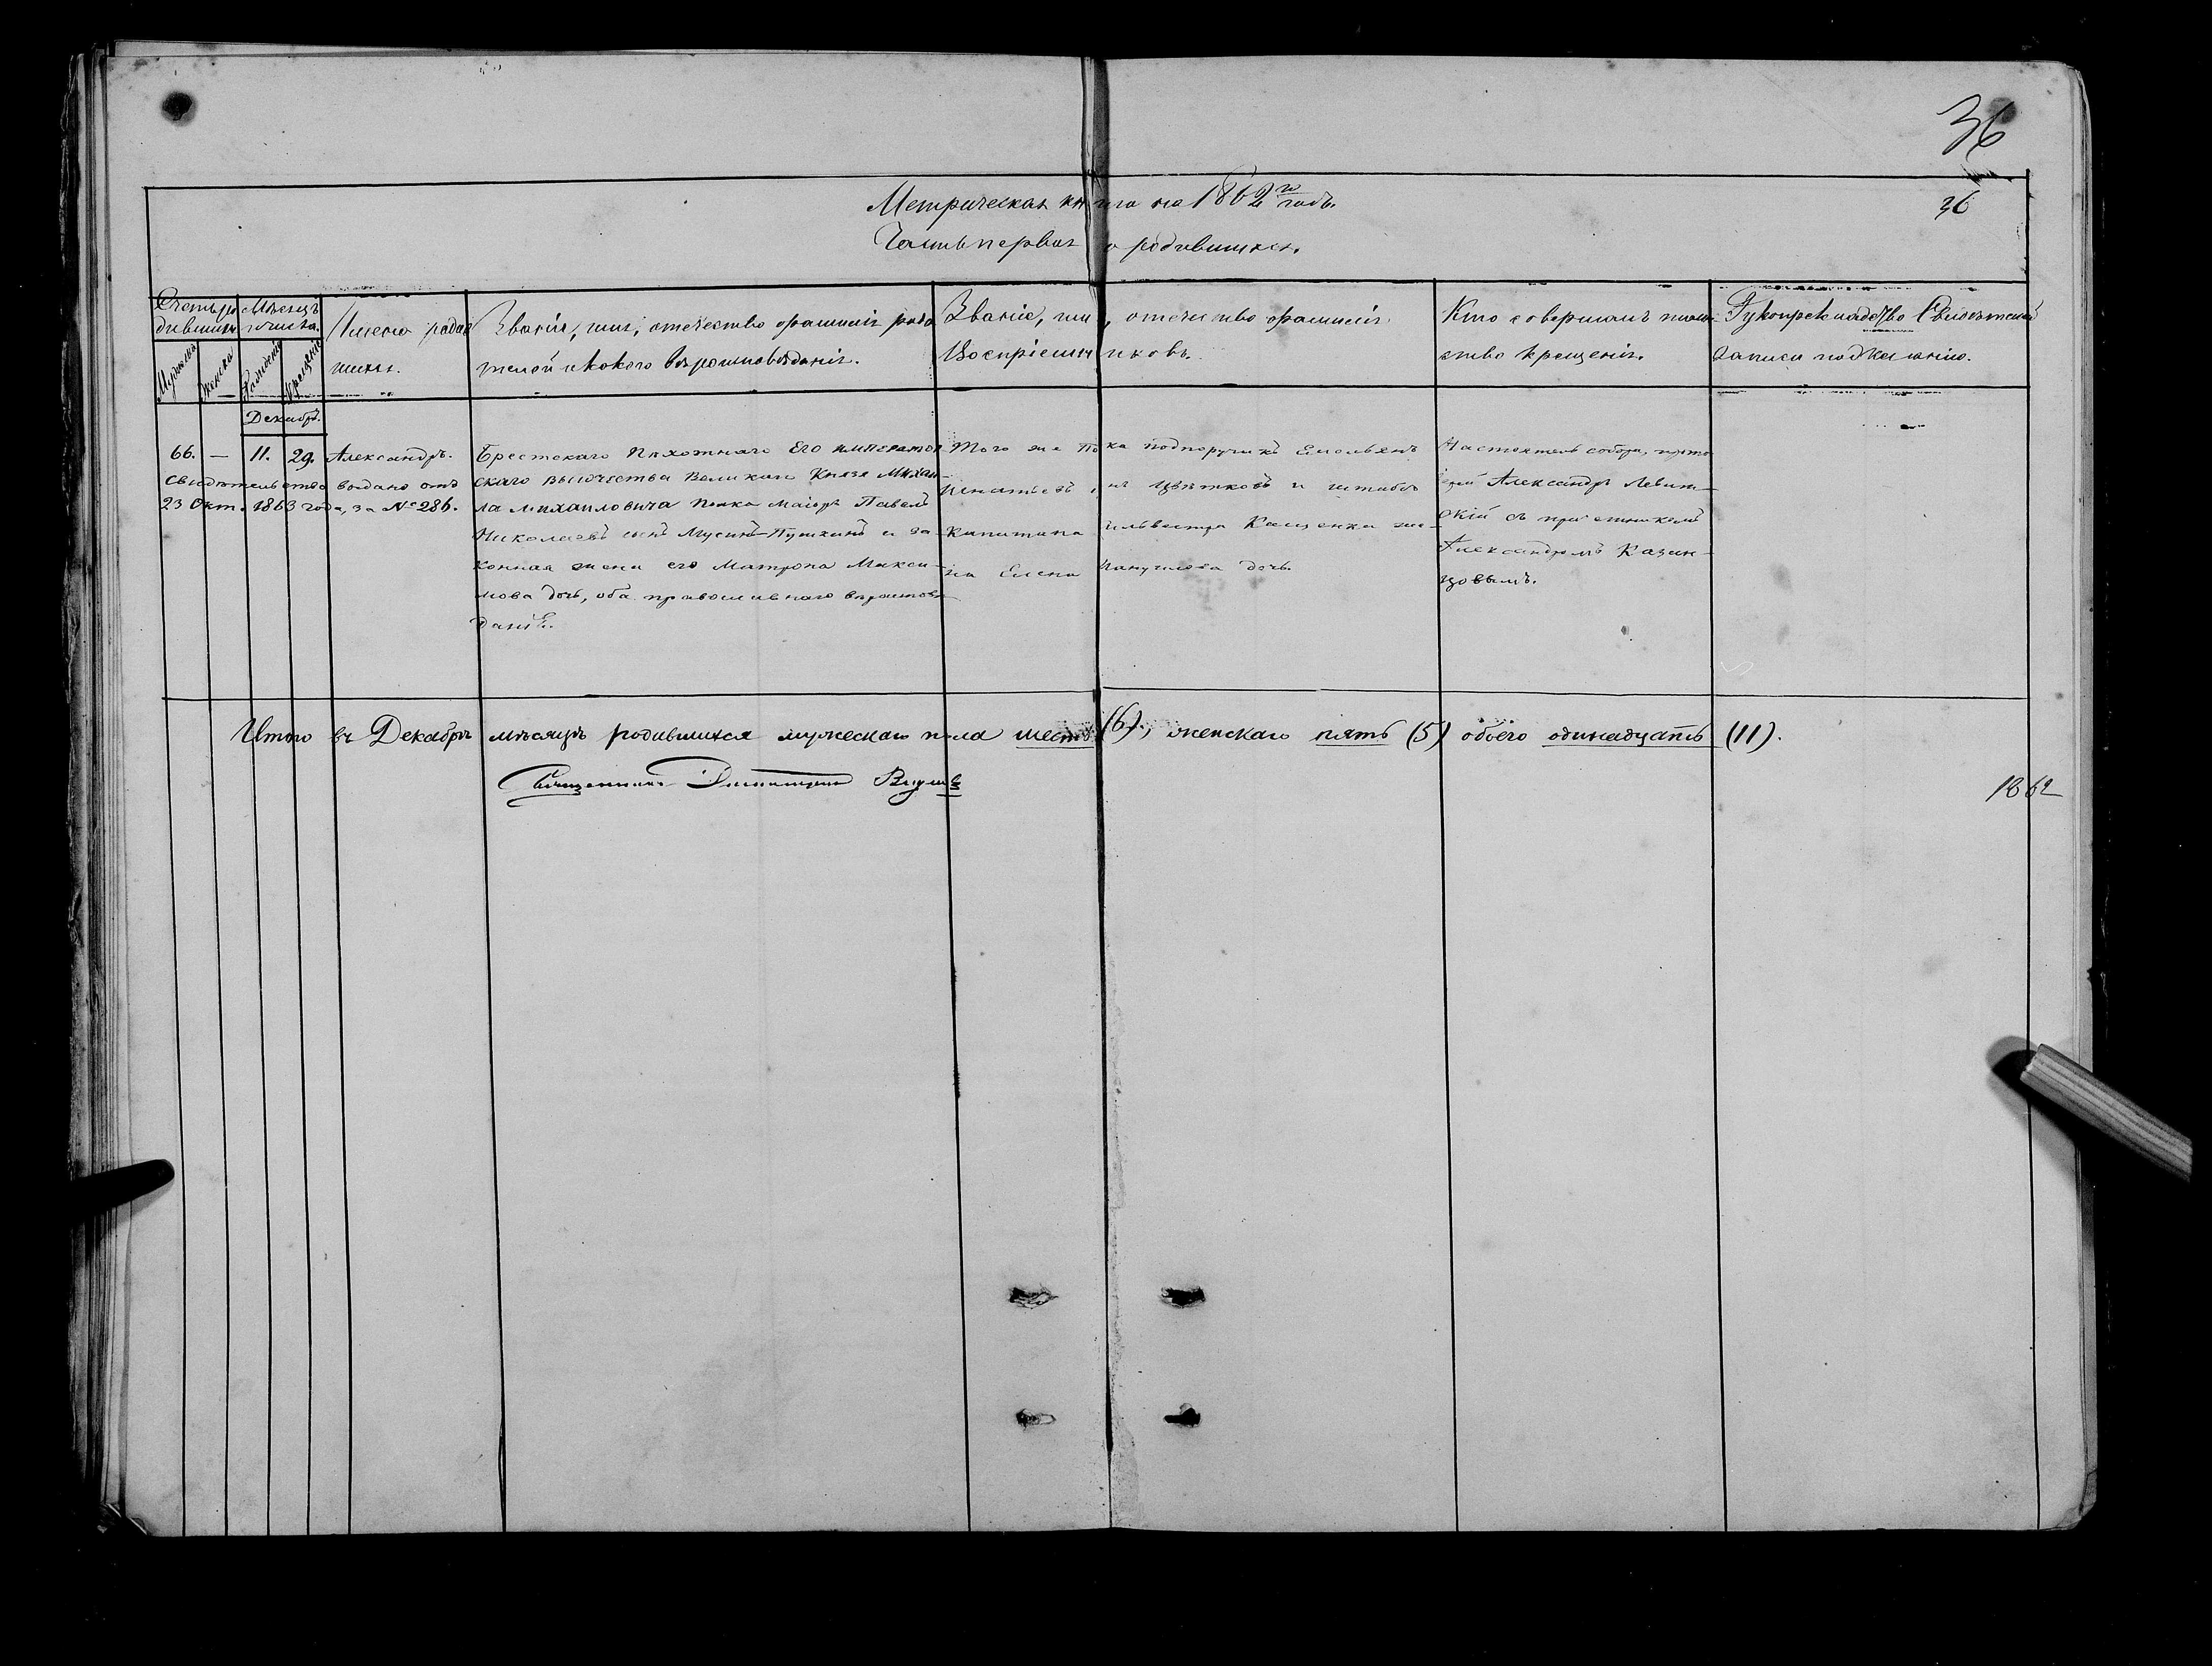 36
Метрическая книга на 1862й годъ.
36
Часть первая о родившихся.
Счетъ родившихся
Мѣсяцъ и числа.
Мужеска
Женска
Рожденія
Крещенія
Имена родившихся.
Званіе, имя, отечество фамилія родителей и какого вѣроисповѣданія.
Званіе, имя, отечество фамилія Воспріемниковъ.
Кто совершалъ таинство крещенія.
Рукоприкладство Свидѣтелей записи по желанію.
Декабрь.
66. — 11. 29. Александръ.
Свидѣтельство выдано отъ
23 Окт. 1863 года, за № 286.
Брестскаго Пѣхотнаго Его Император-
скаго Высочества Великаго Князя Михаи-
ла Михаиловича Полка Маіоръ Павелъ
Николаевъ сынъ Мусинъ-Пушкинъ и за-
конная жена его Матрона Макси-
мова дочь, оба православнаго вѣроиспов-
данія.
Того же Полка подпоручикъ Емельянъ
Игнатьевъ сынъ Цвѣтковъ и штабсъ
капитана Сильвестра Кащенка же-
на Елена дочь.
Настоятель собора, прото
іерей Александръ Левит-
скій съ причетникомъ
Александромъ Казан-
цовымъ.
Итого въ Декабрѣ мѣсяцѣ родившихся мужескаго пола шесть (6), женскаго пять (5) обоего одинадцать (11).
Священникъ Димитрій
1862